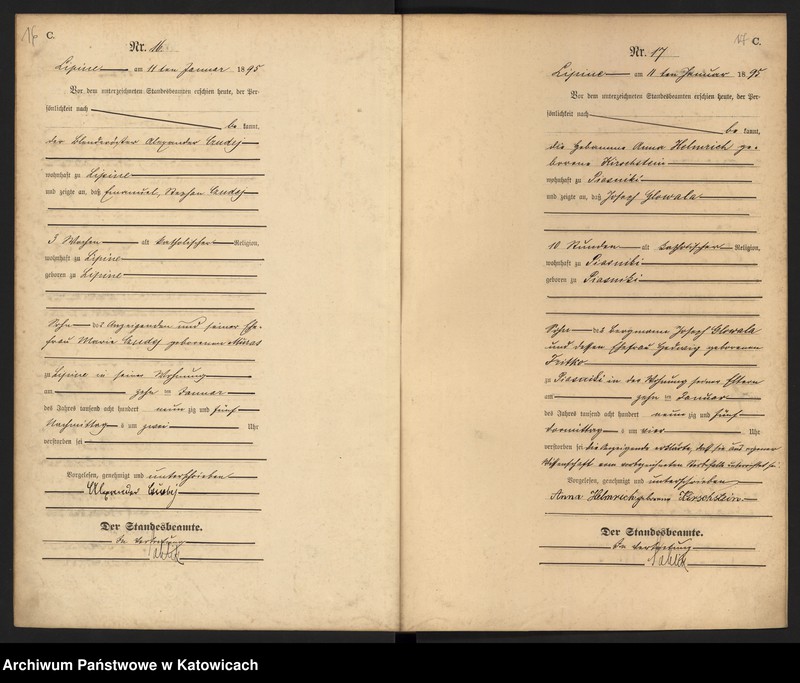 16 C.
Nr. 16
Lipine am 11 ten Januar 1895
Vor dem unterzeichneten Standesbeamten erschien heute, der Per-
sönlichkeit nach
be kannt,
der Alexander
wohnhaft zu Lipine
und zeigte an, daß Emanuel, Stephan
3 Wochen alt katholischer Religion,
wohnhaft zu Lipine
geboren zu Lipine
Sohn des Anzeigenden und seiner Ehe-
frau Marie geborenen Muras
zu Lipine in seiner Wohnung
am zehn ten Januar
des Jahres tausend acht hundert neun zig und fünf
Nachmittag s um zwei Uhr
verstorben sei
Vorgelesen, genehmigt und unterschrieben
Alexander
Der Standesbeamte.
In Vertretung
17 C.
Nr. 17
Lipine am 11 ten Januar 1895
Vor dem unterzeichneten Standesbeamten erschien heute, der Per-
sönlichkeit nach
be kannt,
die Hebamme Anna Helmrich ge-
borene Kirschstein
wohnhaft zu Piasniki
und zeigte an, daß Joseph Glowala
10 Stunden alt katholischer Religion,
wohnhaft zu Piasniki
geboren zu Piasniki
Sohn des Bergmanns Joseph Glowala
und dessen Ehefrau Hedwig geborenen
Fritko
zu Piasniki in der Wohnung seiner Eltern
am zehn ten Januar
des Jahres tausend acht hundert neun zig und fünf
Vormittag s um vier Uhr
verstorben sei die Anzeigende erklärte, daß sie aus eigener
Wissenschaft von vorbezeichneten Sterbefalle unterrichtet sei.
Vorgelesen, genehmigt und unterschrieben
Anna Helmrich geborene Kirschstein
Der Standesbeamte.
In Vertretung
Archiwum Państwowe w Katowicach